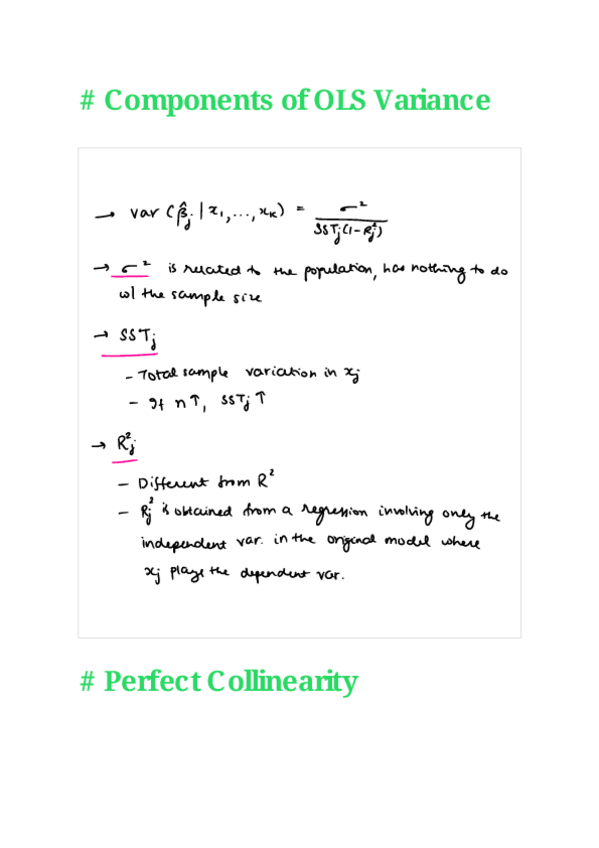 # Components of OLS Variance
→ var (β̂j | x1, ..., xK) = σ² / SSTj(1 - Rj²)
→ σ² is related to the population, has nothing to do
w/ the sample size
→ SSTj
- Total sample variation in xj
- If n↑, SSTj ↑
→ Rj²
- Different from R²
- Rj² is obtained from a regression involving only the
independent var. in the original model where
xj plays the dependent var.
# Perfect Collinearity